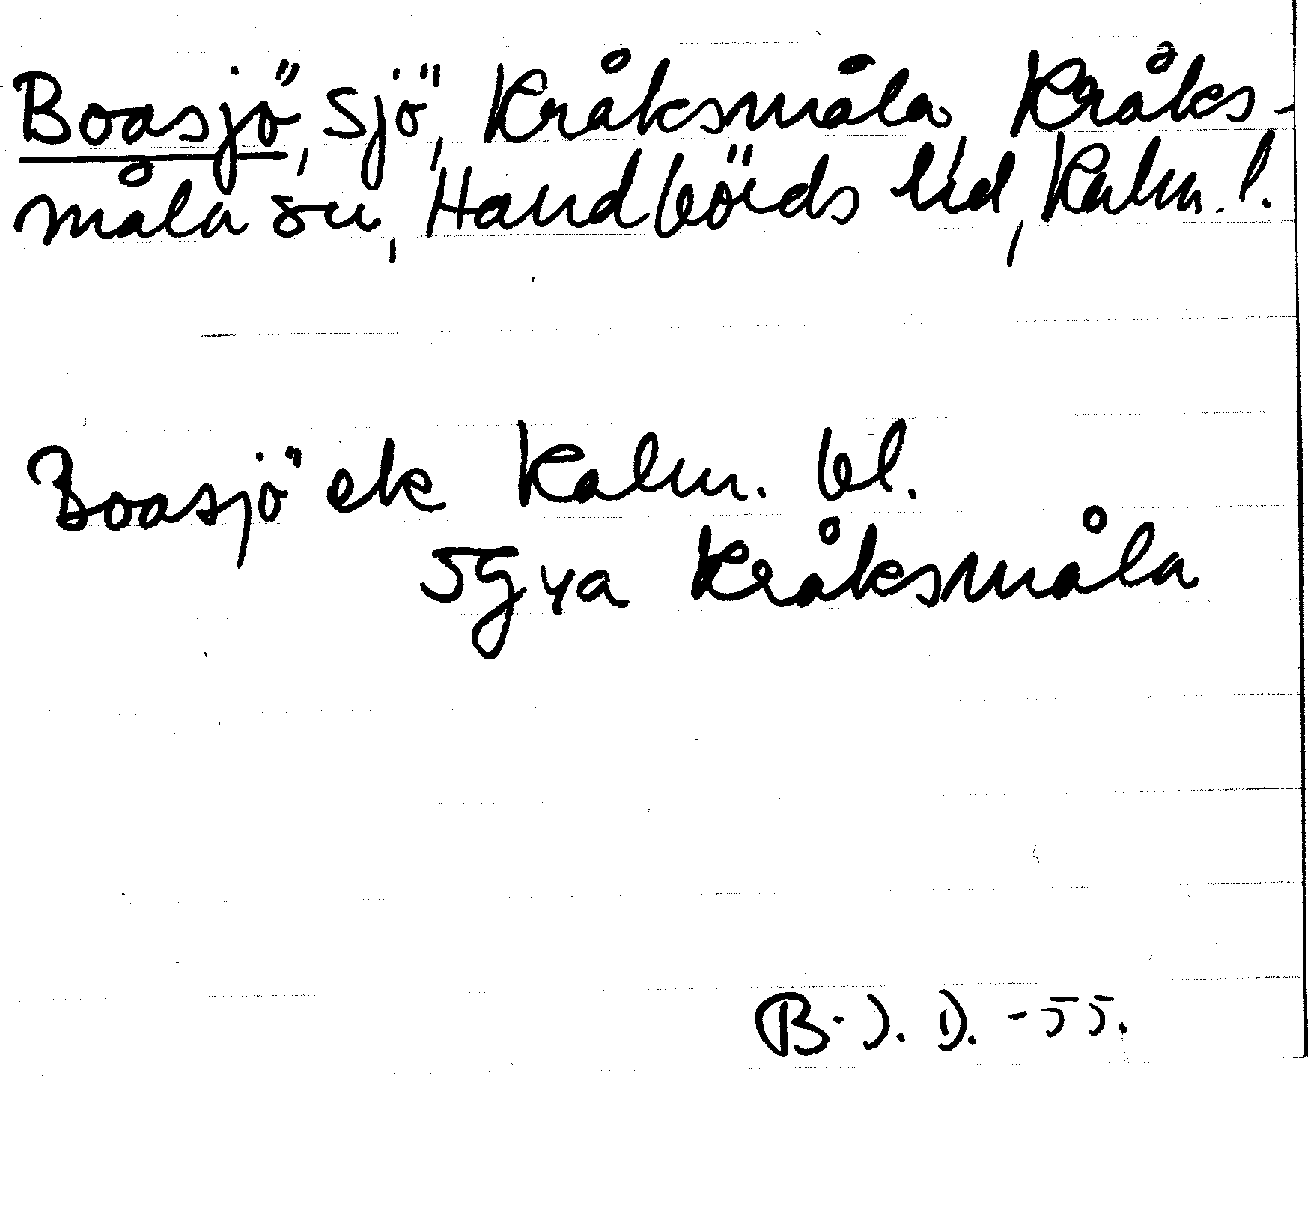 Boasjö, sjö, Kråksmåla, Kråks-
måla sn, Handbörds hd, Kalm. l.
Boasjö ek Kalm. bl.
5G4a Kråksmåla
B-J. D. -55.